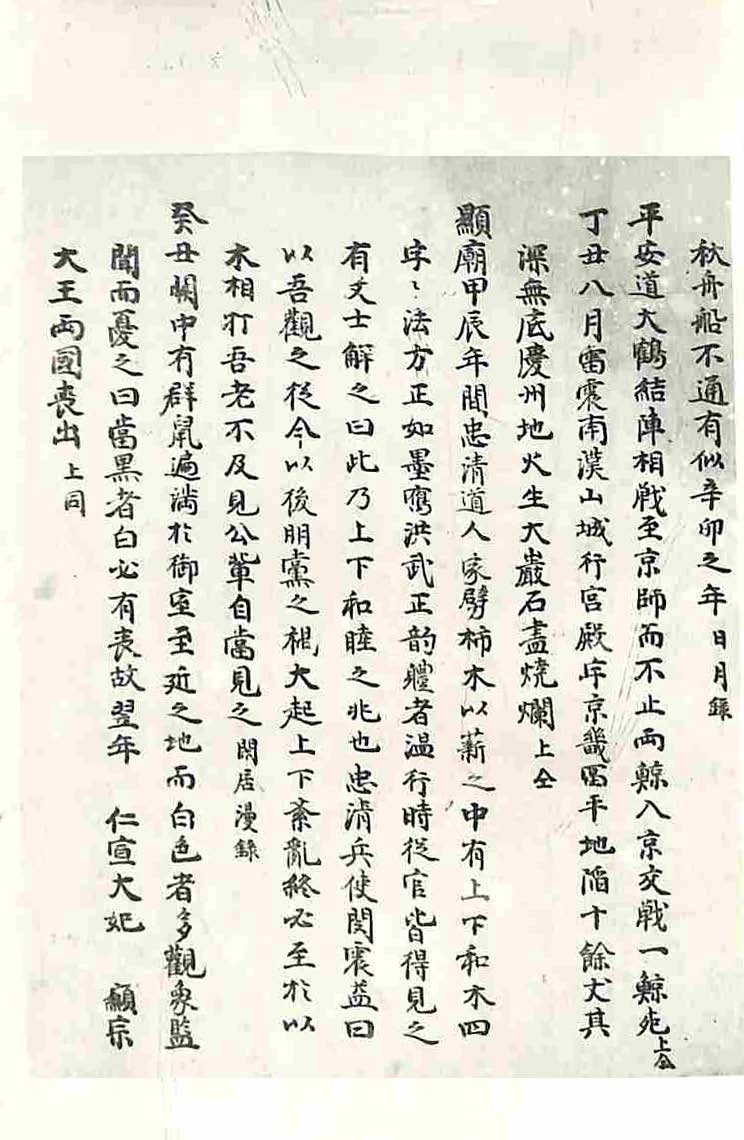 秋舟船不通有似辛卯之年日月錄
平安道大鶴結陣相戰至京師而不止両鯨入京交戰一鯨死上仝
丁丑八月雷震南漢山城行宮殿宇京畿邑平地陷十餘丈其
深無底慶州地火生大巖石盡燒爛上仝
顯廟甲辰年間忠清道人家劈柿木以薪之中有上下和木四
字〻法方正如墨 洪武正韵軆者溫行時從官皆得見之
有文士解之曰此乃上下和睦之兆也忠清兵使閔震益曰
以吾觀之從今以後朋黨之禍大起上下紊亂終必至於以
木相打吾老不及見公輩自當見之閑居漫錄
癸丑闕中有群鼠遍満於御室至近之地而白色者多觀象監
聞而憂之曰當黑者白必有喪故翌年 仁宣大妃 顯宗
大王両國喪出上同